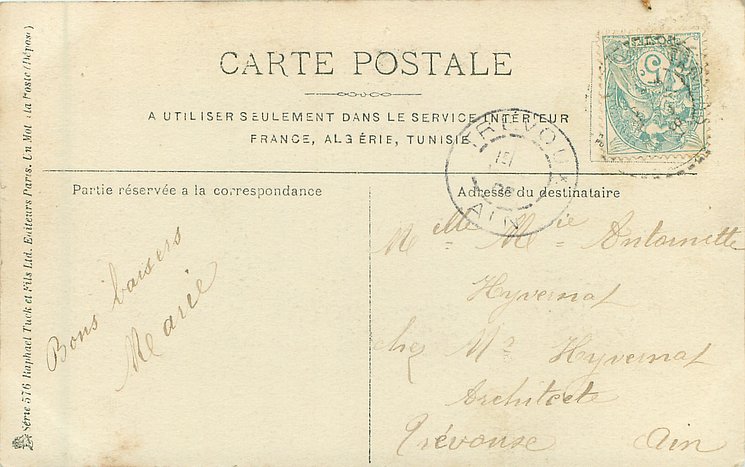 CARTE POSTALE
A UTILISER SEULEMENT DANS LE SERVICE INTÉRIEUR
FRANCE, ALGÉRIE, TUNISIE
TRÉVOUX
AIN
Partie réservée a la correspondance
Adresse du destinataire
Bons baisers
Marie
Melle Mie Antoinette
Hyvernat
chez Mr Hyvernat
Architecte
Trévouse Ain
Série 576 Raphael Tuck et Fils Ltd. Editeurs Paris. Un Mot à la Poste (Déposé)
5